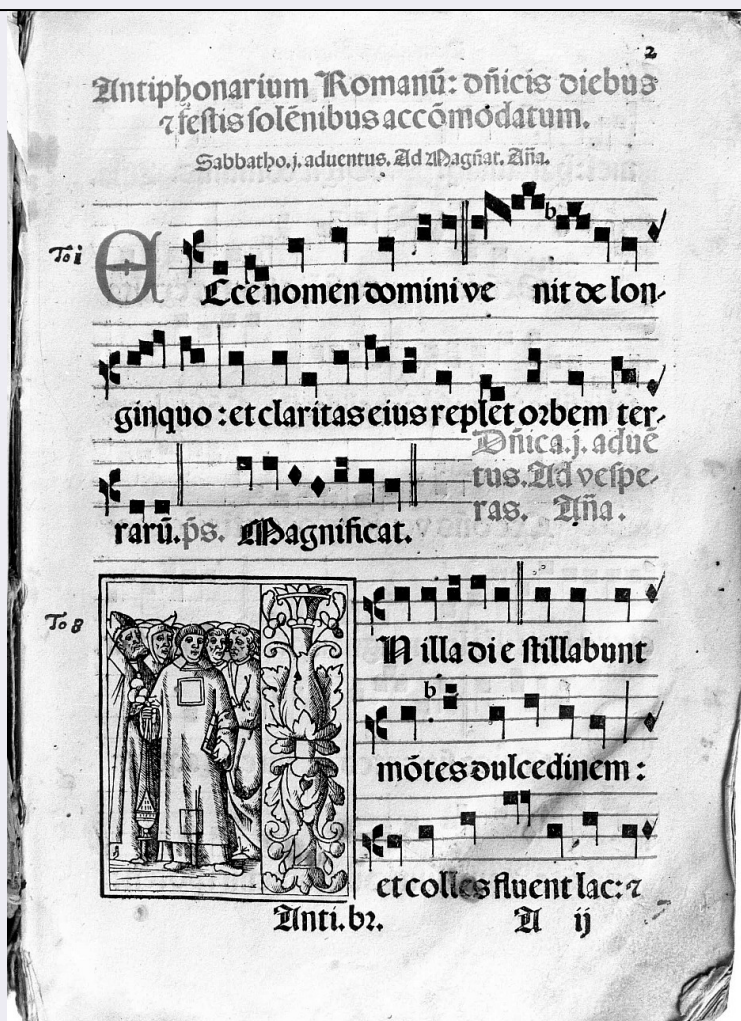 2
Antiphonarium Romanū: dñicis diebus
⁊ festis solēnibus accōmodatum.
Sabbatho.j. aduentus. Ad Magñat. Aña.
To i
E Cce nomen domini ve nit de lon-
ginquo : et claritas eius replet orbem ter-
Dñica.j. aduē
tus. Ad vespe-
ras. Aña.
rarū. p̄s. Magnificat.
To 8
N illa di e stillabunt
mōtes dulcedinem :
et colles fluent lac: ⁊
Anti. br. A ij